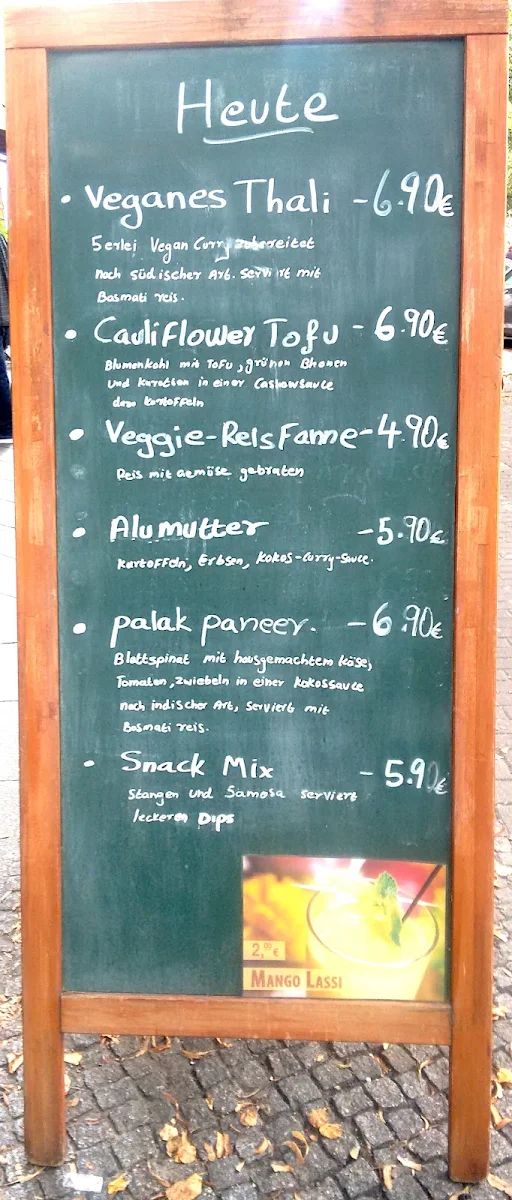 Heute
• Veganes Thali - 6.90€
5erlei Vegan Curry zubereitet
nach südischer Art. serviert mit
Basmati reis.
• Cauliflower Tofu - 6.90€
Blumenkohl mit Tofu, grünen Bhonen
und Karotten in einer Cashewsauce
dazu kartoffeln
• Veggie-ReisFanne - 4.90€
Reis mit Gemüse gebraten
• Alu mutter - 5.90€
kartoffeln, Erbsen, kokos-curry-sauce.
• palak paneer. - 6.90€
Blattspinat mit hausgemachtem käse,
Tomaten, zwiebeln in einer kokossauce
nach indischer Art, serviert mit
Basmati reis.
• Snack Mix - 5.90€
Stangen und Samosa serviert
leckeren Dips
2,99€
MANGO LASSI